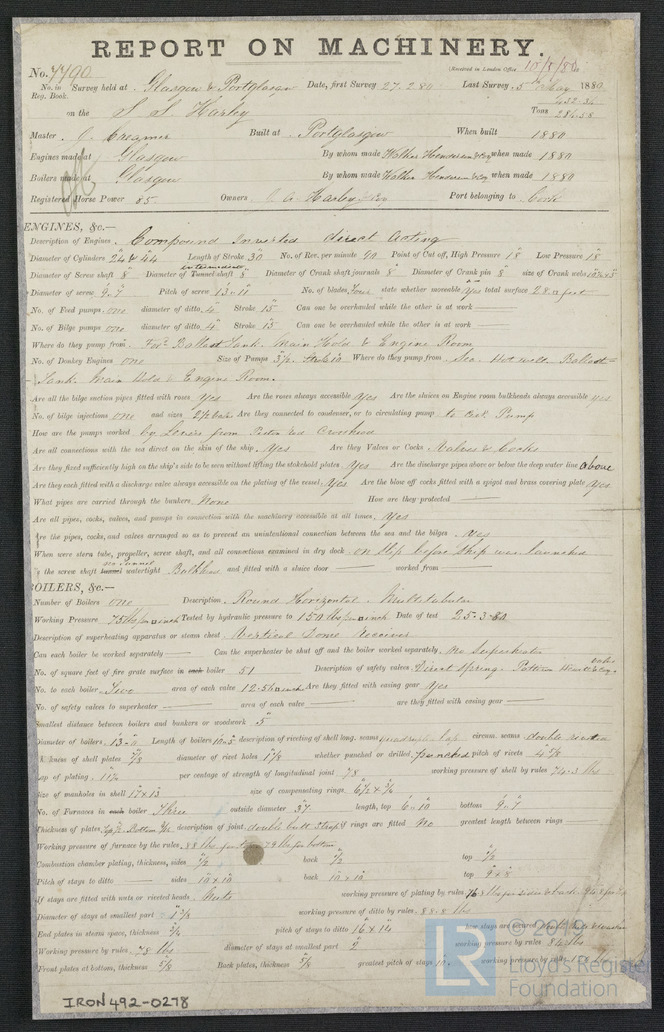 REPORT ON MACHINERY.
No. 7790 (Received in London Office 18/5/80
No. in Reg. Book. Survey held at Glasgow & Portglasgow Date, first Survey 27.2.80 Last Survey 5th May 1880
on the S. S. Harley Tons 432.34 284.58
Master Built at Portglasgow When built 1880
Engines made at Glasgow By whom made Walker Henderson & Coy when made 1880
Boilers made at Glasgow By whom made Walker Henderson & Coy when made 1880
Registered Horse Power 85 Owners Harley & Coy Port belonging to Cork
ENGINES, &c.—
Description of Engines Compound Inverted direct Acting
Diameter of Cylinders 24 & 44 Length of Stroke 30 No. of Rev. per minute 90 Point of Cut off, High Pressure 18 Low Pressure 18
Diameter of Screw shaft 8 Diameter of Tunnel shaft intermediate 8 Diameter of Crank shaft journals 8 Diameter of Crank pin 8 size of Crank webs
Diameter of screw 9.7 Pitch of screw 13.11 No. of blades four state whether moveable yes total surface 28 feet
No. of Feed pumps one diameter of ditto 4 Stroke 15 Can one be overhauled while the other is at work
No. of Bilge pumps one diameter of ditto 4 Stroke 15 Can one be overhauled while the other is at work
Where do they pump from Ford Ballast Tank. Main Hold & Engine Room
No. of Donkey Engines one Size of Pumps 3½ Stroke 10 Where do they pump from Sea. Hot well. Ballast
Tank. Main Hold & Engine Room.
Are all the bilge suction pipes fitted with roses Yes Are the roses always accessible Yes Are the sluices on Engine room bulkheads always accessible yes
No. of bilge injections one and sizes 2½ Are they connected to condenser, or to circulating pump to Circ. Pump
How are the pumps worked by Levers from Piston rod Crosshead
Are all connections with the sea direct on the skin of the ship Yes Are they Valves or Cocks Valves & Cocks
Are they fixed sufficiently high on the ship's side to be seen without lifting the stokehold plates Yes Are the discharge pipes above or below the deep water line above
Are they each fitted with a discharge valve always accessible on the plating of the vessel Yes Are the blow off cocks fitted with a spigot and brass covering plate Yes
What pipes are carried through the bunkers None How are they protected
Are all pipes, cocks, valves, and pumps in connection with the machinery accessible at all times Yes
Are the pipes, cocks, and valves arranged so as to prevent an unintentional connection between the sea and the bilges Yes
When were stern tube, propeller, screw shaft, and all connections examined in dry dock on slip before ship was launched
Is the screw shaft tunnel watertight no Tunnel Bulkhead and fitted with a sluice door worked from
BOILERS, &c.—
Number of Boilers one Description Round Horizontal. Multitubular
Working Pressure 75 lbs pr □ inch Tested by hydraulic pressure to 150 lbs pr □ inch Date of test 25.3.80
Description of superheating apparatus or steam chest Vertical Dome Receiver
Can each boiler be worked separately Can the superheater be shut off and the boiler worked separately no Superheater
No. of square feet of fire grate surface in each boiler 51 Description of safety valves Direct Spring.
No. to each boiler Two area of each valve 12.56 □ inches Are they fitted with easing gear Yes
No. of safety valves to superheater area of each valve are they fitted with easing gear
Smallest distance between boilers and bunkers or woodwork 5
Diameter of boilers 13.0 Length of boilers 10.3 description of riveting of shell long. seams lap circum. seams double riveted
Thickness of shell plates 7/8 diameter of rivet holes 1 1/8 whether punched or drilled punched pitch of rivets 4 5/8
Lap of plating 11¼ per centage of strength of longitudinal joint 78 working pressure of shell by rules 74.3 lbs
Size of manholes in shell 17 x 13 size of compensating rings 6½ x ¾
No. of Furnaces in each boiler Three outside diameter 37 length, top 6.10 bottom 9.7
Thickness of plates description of joint double butt Straps if rings are fitted No greatest length between rings
Working pressure of furnace by the rules 88 lbs 79 lbs for bottom
Combustion chamber plating, thickness, sides ½ back ½ top ½
Pitch of stays to ditto sides 10 x 10 back 10 x 10 top 9 x 8
If stays are fitted with nuts or riveted heads Nuts working pressure of plating by rules
Diameter of stays at smallest part 1 3/8 working pressure of ditto by rules 88.8 lbs
End plates in steam space, thickness ¾ pitch of stays to ditto 16 x 14 how stays are secured
Working pressure by rules 78 lbs diameter of stays at smallest part 2 working pressure by rules
Front plates at bottom, thickness 5/8 Back plates, thickness 5/8 greatest pitch of stays working pressure by rules
© 2019
LR Lloyd's Register
Foundation
IRON492-0278